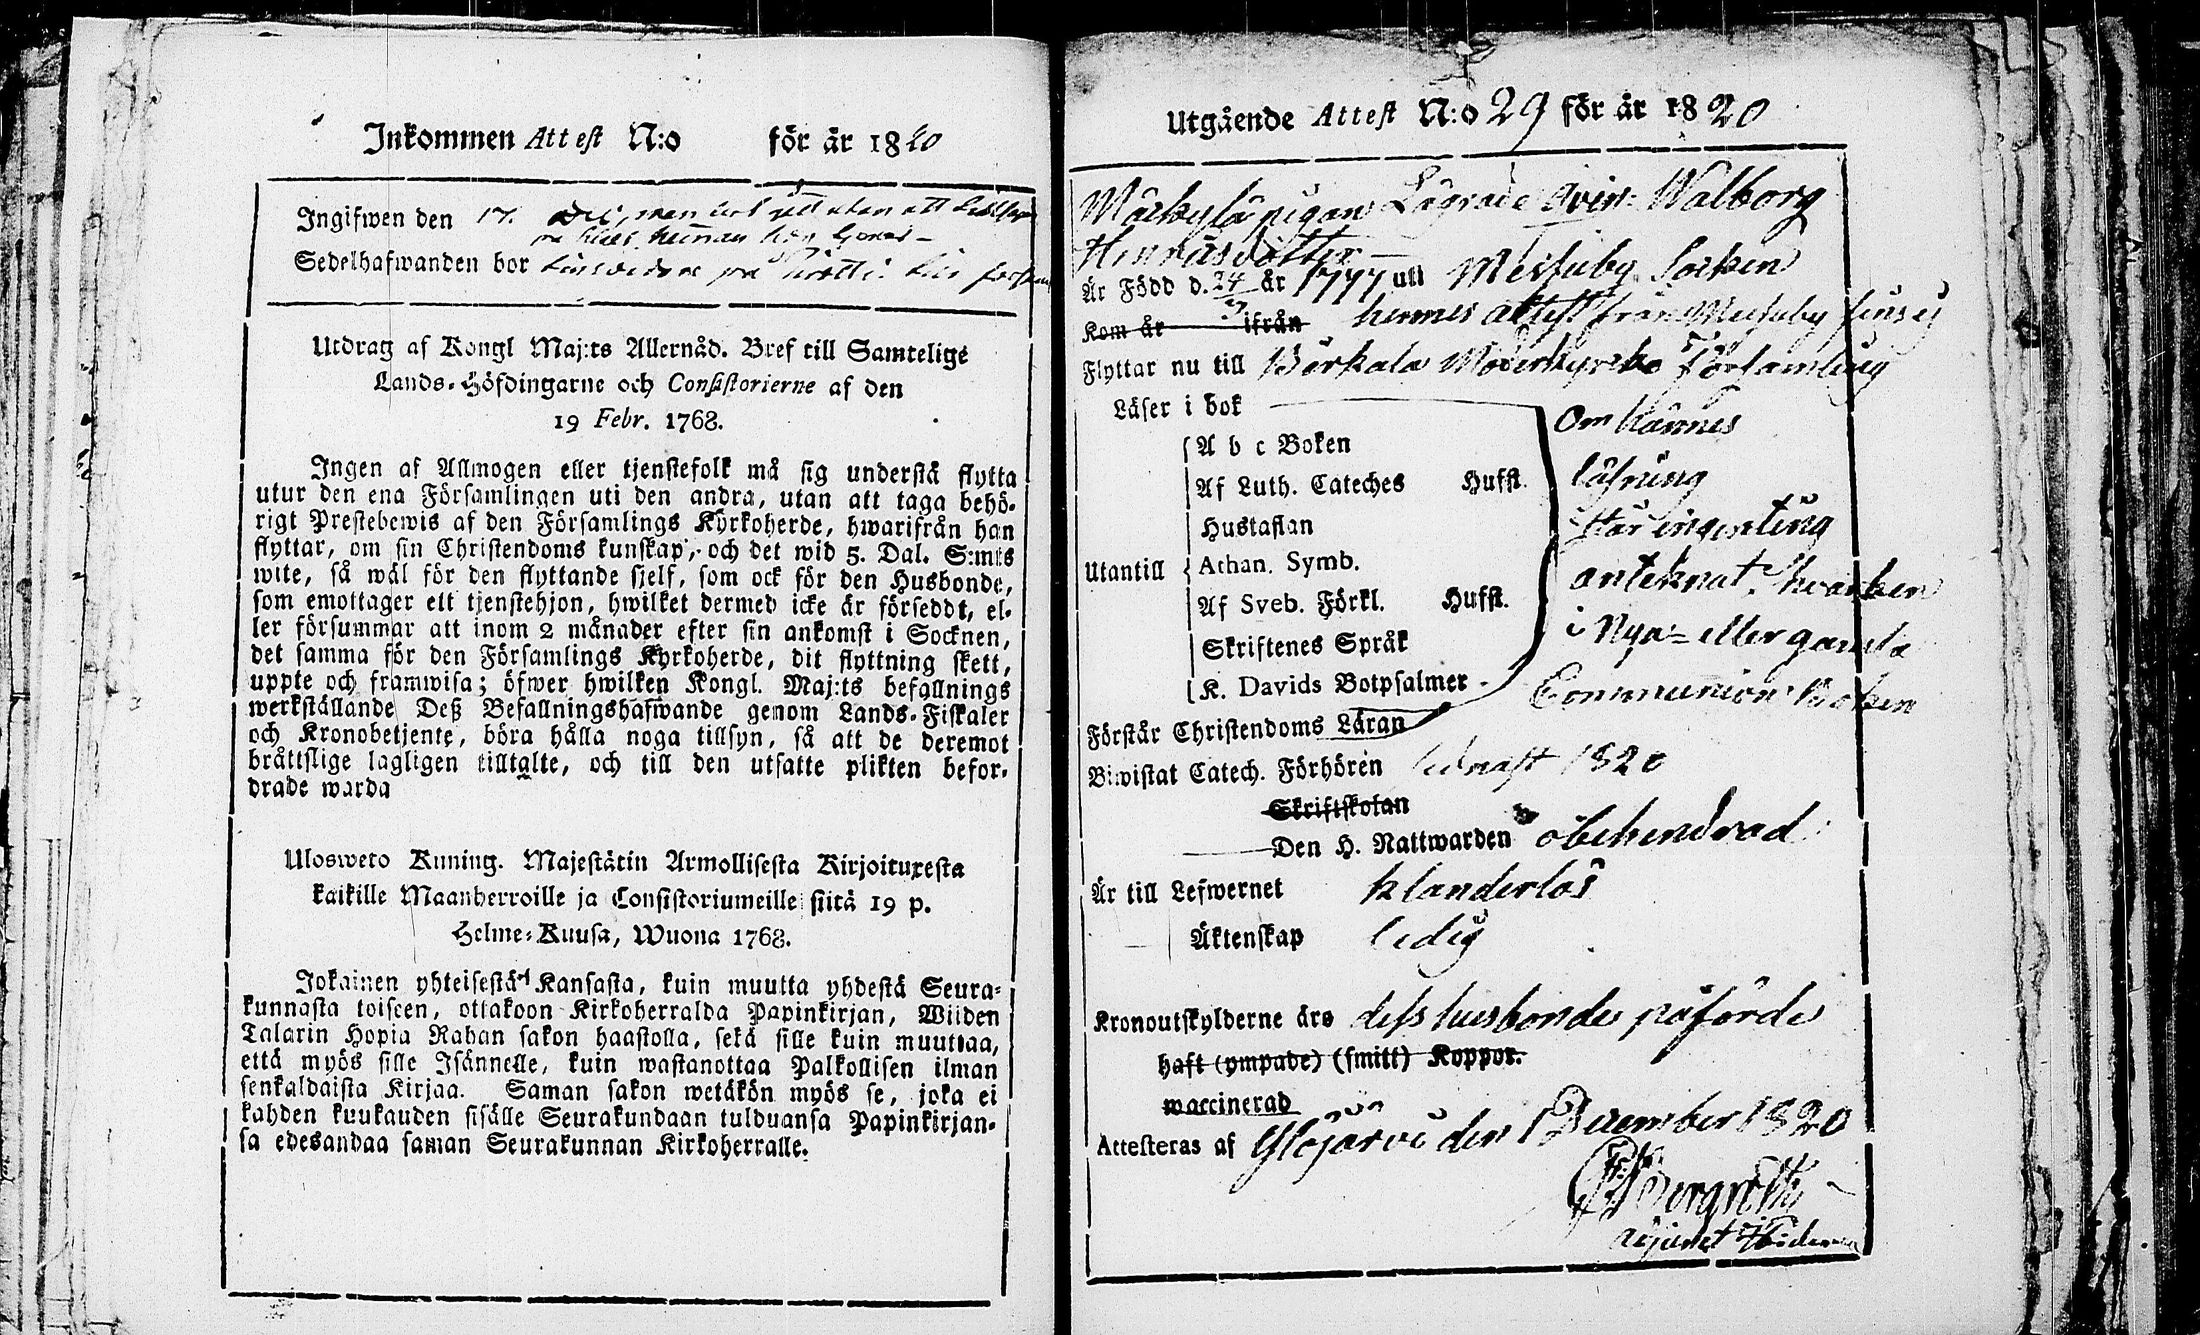 Inkommen Attest N:o för år 1820
Ingifwen den 17.
Sedelhafwanden bor
Utdrag af Kongl Maj:ts Allernåd. Bref till Samtelige
Lands-Höfdingarne och Consistorierne af den
19 Febr. 1768.
Ingen af Allmogen eller tjenstefolk må sig understå flytta
utur den ena Församlingen uti den andra, utan att taga behö-
rigt Prestebewis af den Församlings Kyrkoherde, hwarifrån han
flyttar, om sin Christendoms kunskap, och det wid 5. Dal. S:mts
wite, så wäl för den flyttande sjelf, som ock för den Husbonde,
som emottager ett tjenstehjon, hwilket dermed icke är försedt, el-
ler försummar att inom 2 månader efter sin ankomst i Socknen,
det samma för den Församlings Kyrkoherde, dit flyttning skett,
uppte och framwisa; öfwer hwilken Kongl. Maj:ts befallnings
werkställande Deß Befallningshafwande genom Lands-Fiskaler
och Kronobetjente, böra hålla noga tillsyn, så att de deremot
bråttslige lagligen tilltalte, och till den utsatte plikten befor-
drade warda
Ulosweto Kuning. Majestätin Armollisesta Kirjoituxesta
kaikille Maanherroille ja Consistoriumeille siitä 19 p.
Helme-Kuusa, Wuona 1768.
Jokainen yhteisestä Kansasta, kuin muutta yhdestä Seura-
kunnasta toiseen, ottakoon Kirkoherralda Papinkirjan, Wiiden
Talarin Hopia Rahan sakon haastolla, sekä sille kuin muuttaa,
että myös sille Isännelle, kuin wastanottaa Palkollisen ilman
senkaldaista Kirjaa. Saman sakon wetäkön myös se, joka ei
kahden kuukauden sisälle Seurakundaan tulduansa Papinkirjan-
sa edesandaa saman Seurakunnan Kirkoherralle.
Utgående Attest N:o 29 för år 1820
Walborg
Henricsdotter
Är Född d. 24 år 1777 uti Messuby Socken
Kom år ifrån hennes attest från Messuby
Flyttar nu till Birkala Moderkyrko Församling
Läser i bok Om hännes
A b c Boken
Af Luth. Cateches Hufst. läsning
Hustaflan står ingenting
Utantill Athan. Symb. anteknat, hvarken
Af Sveb. Förkl. Hufst. i Nya- eller gamla
Skriftenes Språk
K. Davids Botpsalmer Communion Boken
Förstår Christendoms Läran
Biwistat Catech. Förhören 1820
Skriftskolan
Den H. Nattwarden obehindrad
Är till Lefwernet klanderlös
Äktenskap ledig
Kronoutskylderne äro dess husbonde påförde
haft (ympade) (smitt) Koppor.
waccinerad
Attesteras af Ylöjärvi den 1 December 1820
Bergroth